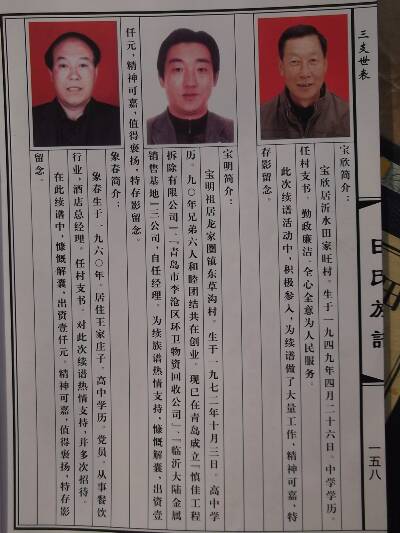 三支世表
田氏族谱
一五八
宝欣简介：
宝欣居沂水田家旺村。生于一九四九年四月二十六日。中学学历。
任村支书。勤政廉洁。全心全意为人民服务。
此次续谱活动中，积极参入，为续谱做了大量工作，精神可嘉，特
存影留念。
宝明简介：
宝明祖居龙家圈镇东草沟村。生于一九七二年十月三日。高中学
历。九〇年兄弟六人和睦团结共在创业。现已在青岛成立「慎佳工程
拆除有限公司」、「青岛市李沧区环卫物资回收公司」、「临沂大陆金属
销售基地」三公司，自任经理。为续族谱热情支持，慷慨解囊，出资壹
仟元，精神可嘉，值得褒扬，特存影留念。
象春简介：
象春生于一九六〇年。居住王家庄子。高中学历。党员。从事餐饮
行业，酒店总经理。任村支书。对此次续谱热情支持，并多次招待。
在此续谱中，慷慨解囊，出资壹仟元。精神可嘉，值得褒扬，特存影
留念。